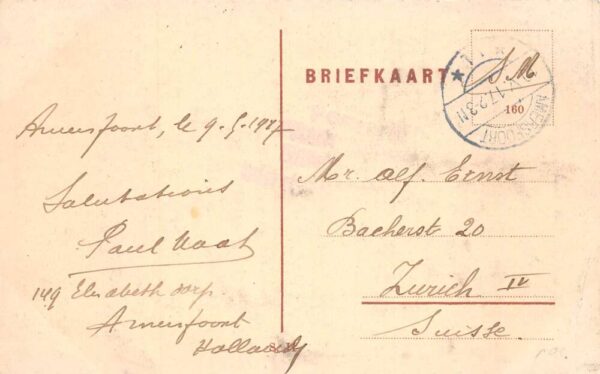 BRIEFKAART
S. M.
160
AMERSFOORT
Amersfoort, le 9.5.1917
Salutations
Paul
149 Elisabeth dorp
Amersfoort
Holland
Mr. Alf. Ernst
Bacherst 20
Zurich IV
Suisse.